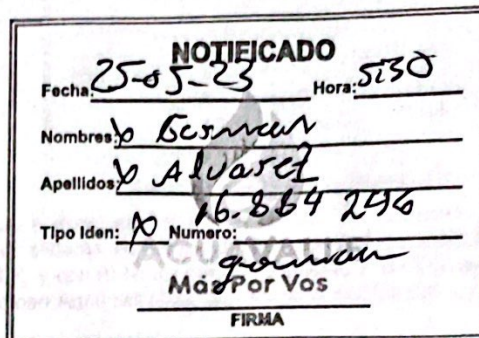 NOTIFICADO
Fecha: 25-05-23 Hora: 5:30
Nombres: German
Apellidos: Alvarez
Tipo Iden: X Numero: 16.864 246
ACUAVALLE
german
Más Por Vos
FIRMA